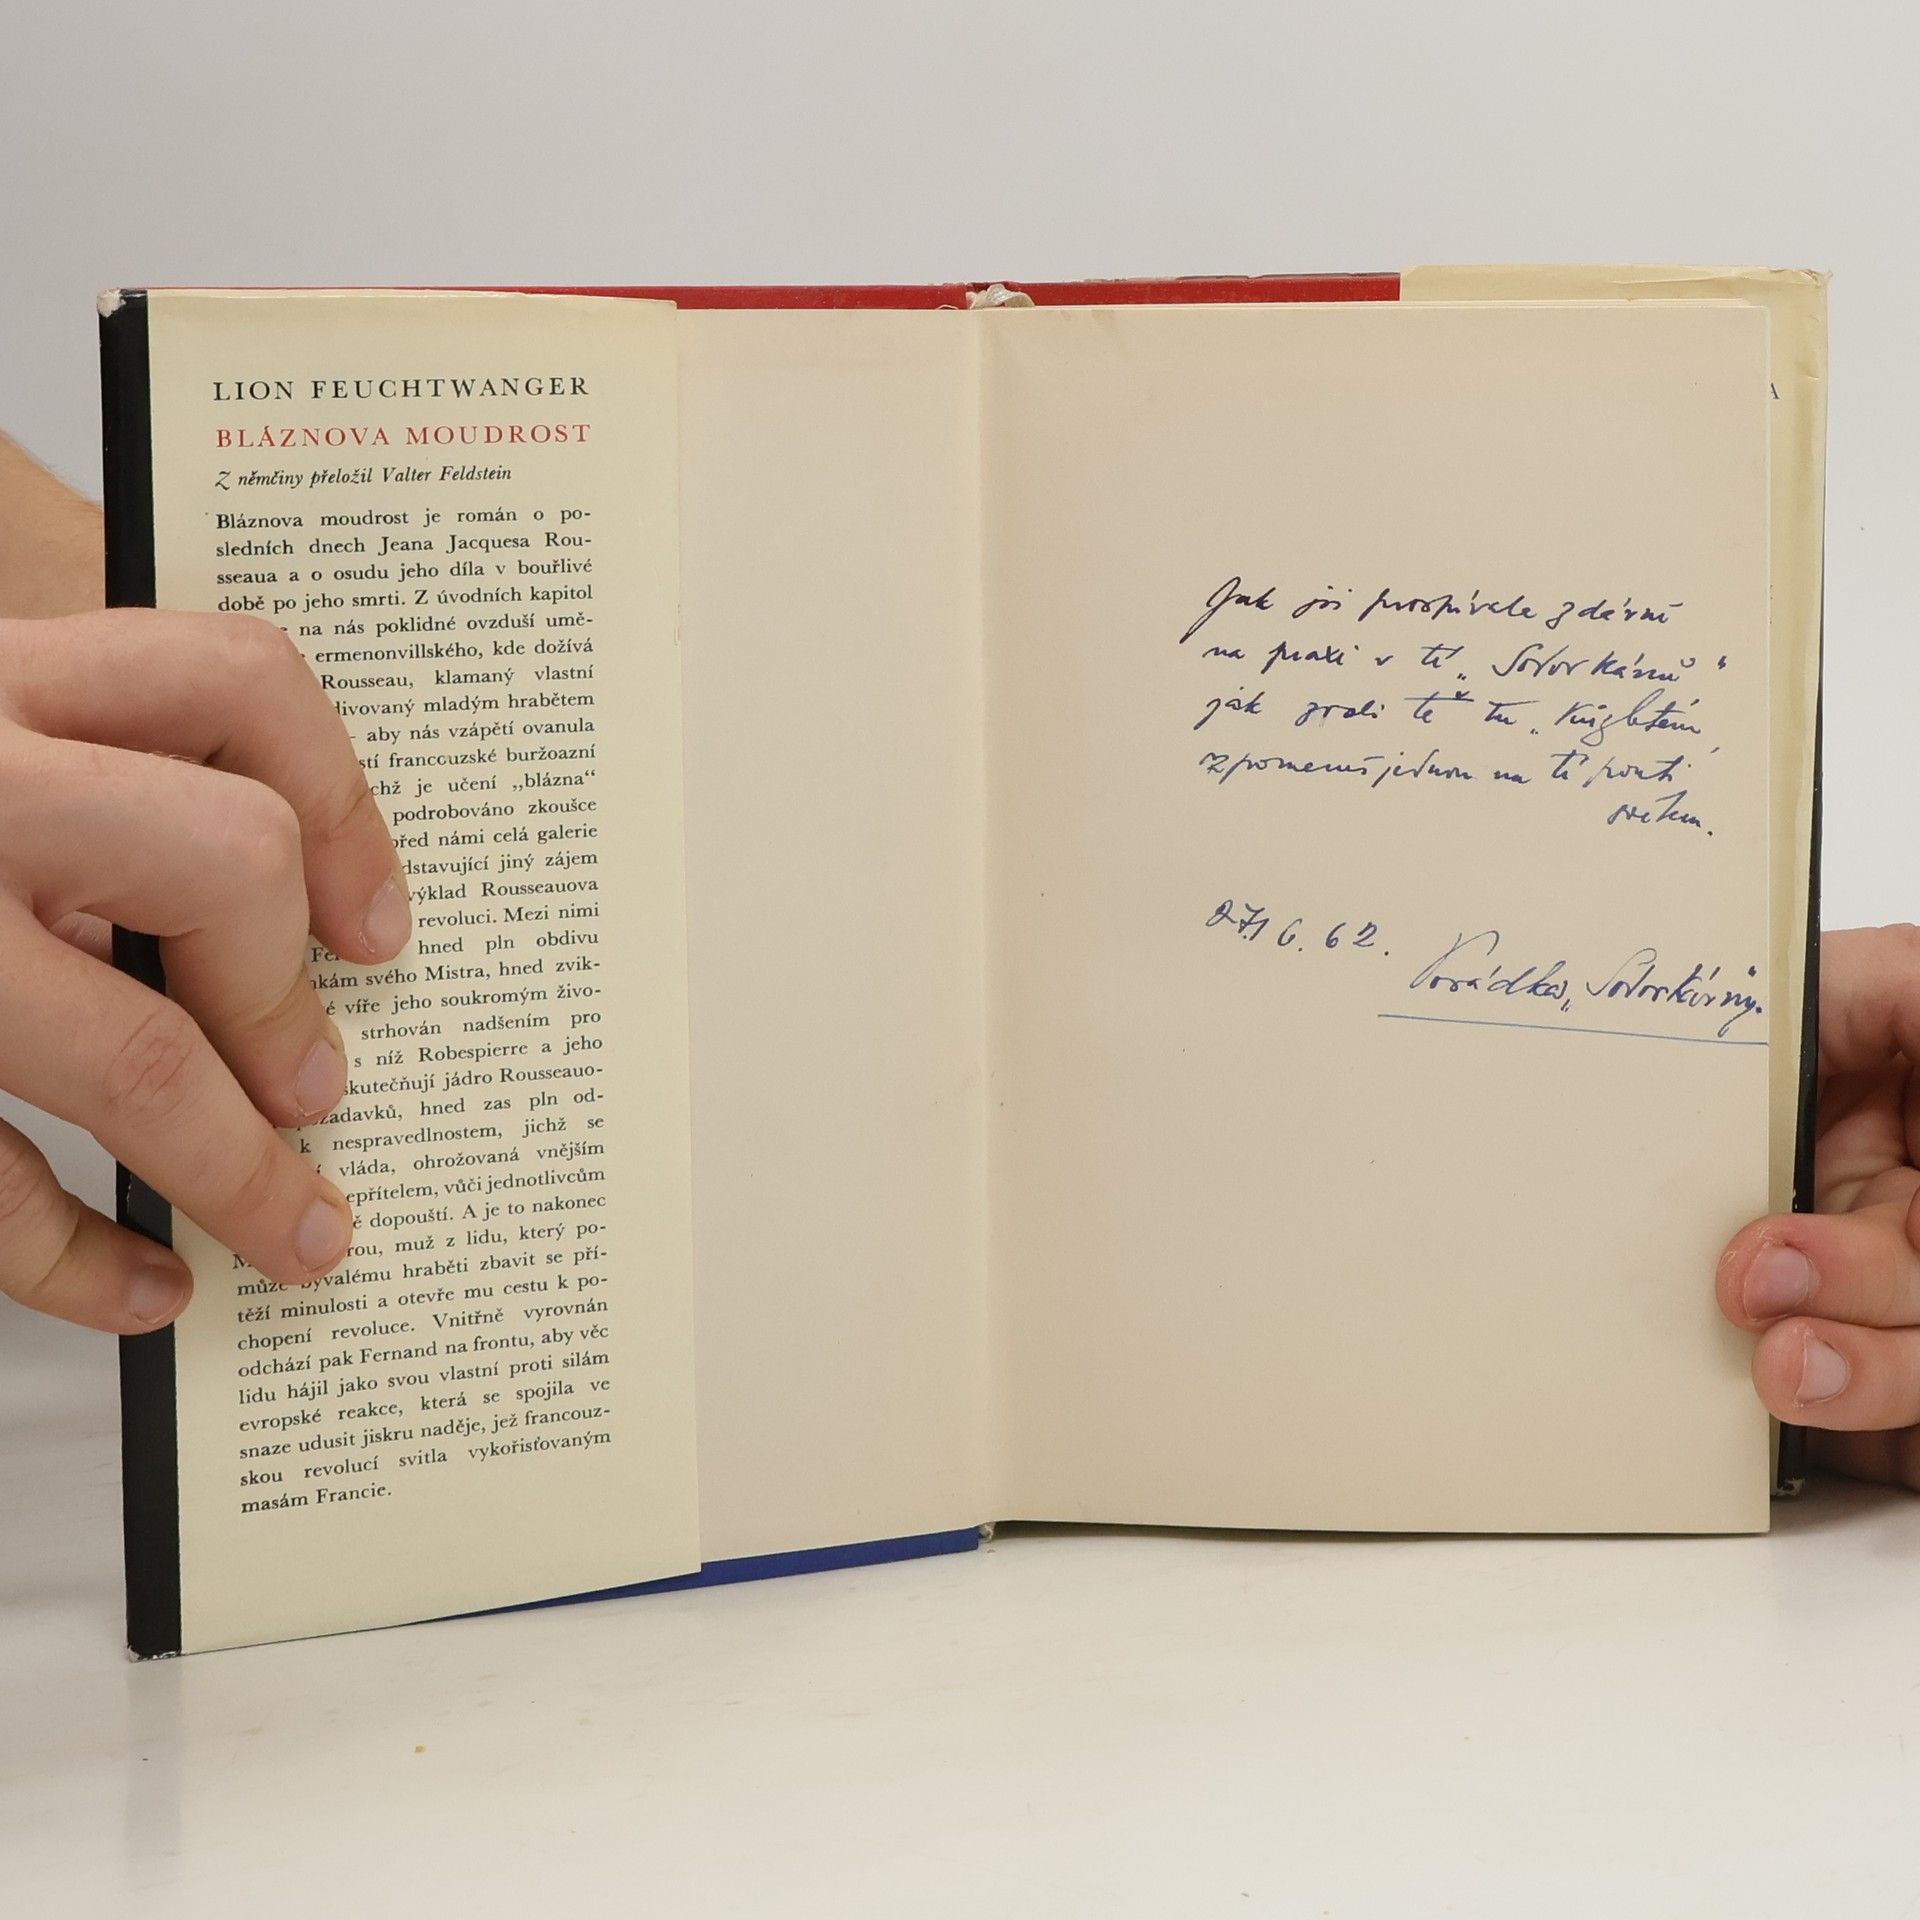 LION FEUCHTWANGER
BLÁZNOVA MOUDROST
Z němčiny přeložil Valter Feldstein
Bláznova moudrost je román o po-
sledních dnech Jeana Jacquesa Rou-
sseaua a o osudu jeho díla v bouřlivé
době po jeho smrti. Z úvodních kapitol
na nás poklidné ovzduší umě-
ermenonvillského, kde dožívá
Rousseau, klamaný vlastní
divovaný mladým hrabětem
– aby nás vzápětí ovanula
stí francouzské buržoazní
chž je učení „blázna“
podrobováno zkoušce
před námi celá galerie
dstavující jiný zájem
výklad Rousseauova
revoluci. Mezi nimi
Fe hned pln obdivu
nkám svého Mistra, hned zvik-
é víře jeho soukromým živo-
strhován nadšením pro
s níž Robespierre a jeho
skutečňují jádro Rousseauo-
ožadavků, hned zas pln od-
k nespravedlnostem, jichž se
í vláda, ohrožovaná vnějším
epřítelem, vůči jednotlivcům
ě dopouští. A je to nakonec
M rou, muž z lidu, který po-
může bývalému hraběti zbavit se pří-
těží minulosti a otevře mu cestu k po-
chopení revoluce. Vnitřně vyrovnán
odchází pak Fernand na frontu, aby věc
lidu hájil jako svou vlastní proti silám
evropské reakce, která se spojila ve
snaze udusit jiskru naděje, jež francouz-
skou revolucí svitla vykořisťovaným
masám Francie.
A
Jak jsi prospívala zdárně
na praxi v té „
jak zvali tě tu
zpomeneš jednou na té pouti
světem.
27/6. 62.